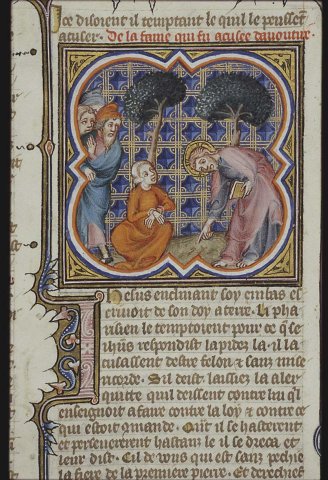 ice disoient il temptant le quil le peussēt
acuser. De la fame qui fu acusee davoutire.
Iesus enclinant soy embas es
crivoit de son doy a terre. Li pha
risien le temptoient pour ce q̄ se
ihūs respondist lapidez la. il la
cusassent destre felon & sanz mise
ricorde. Sil deist laissiez la aler
quitte quil deissent contre lui q̄l
enseignoit a faire contre la loy & contre ce
que estoit ōmande. Quāt il se hasterent
et perseverent hastam̄t le il se dreca et
leur dist. Cil de vous qui est sanz pechie
la fiere de la premiere pierre. Et derechief